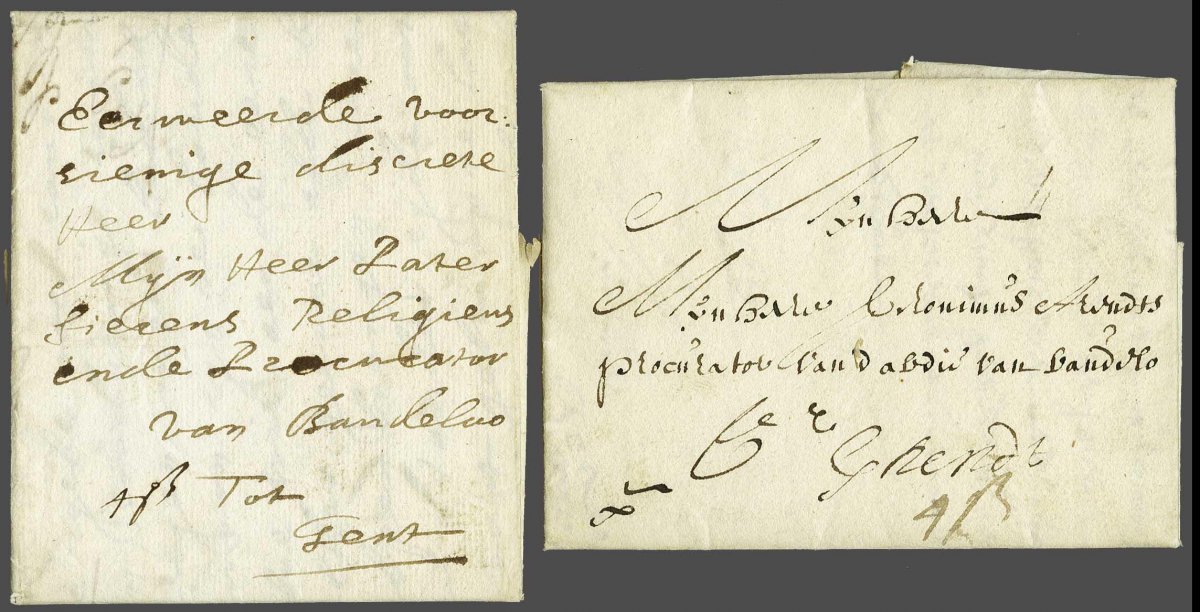 Eerweerde voor:
sienige discrete
Heer
Mijn Heer Pater
sierens Religieus
ende Procurator
van Baudeloo
4ß Tot
Gent
Myn Here
Myn Here Jeronimus Arendts
procurator van d abdie van baudelo
Ghendt
4ß